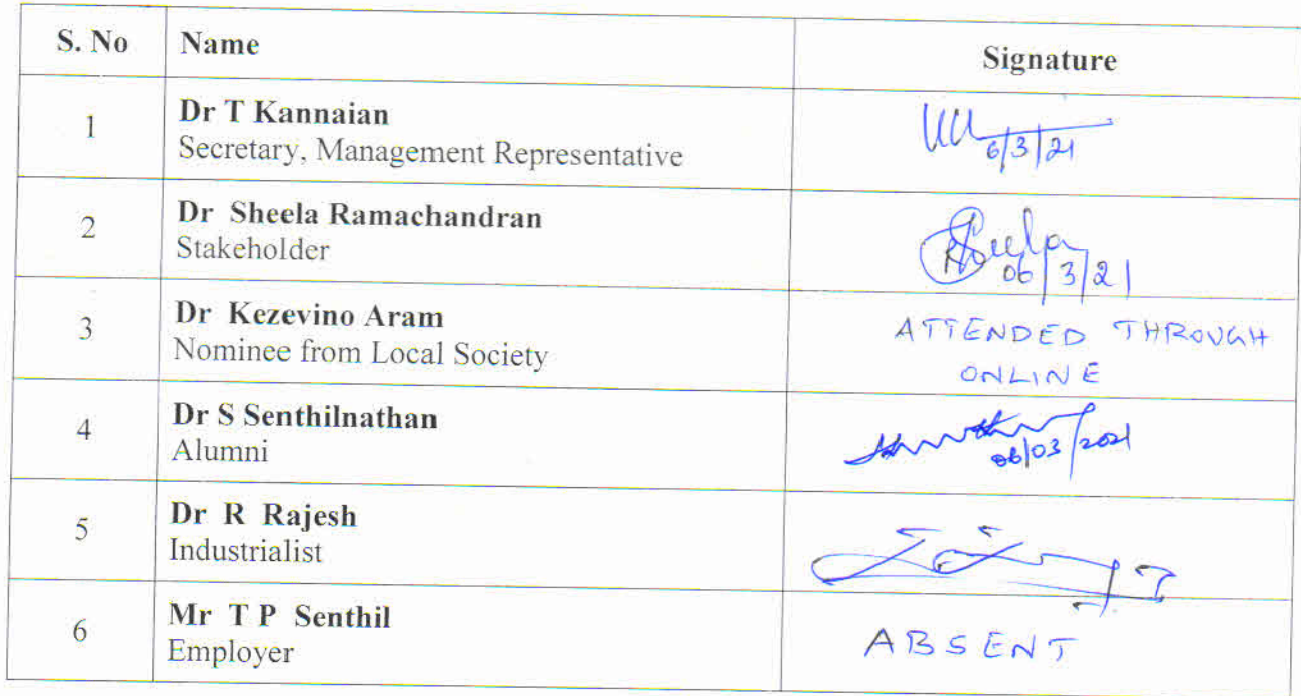 S. No Name Signature
1 Dr T Kannaian
Secretary, Management Representative
6/3/21
2 Dr Sheela Ramachandran
Stakeholder
Sheela
06/3/21
3 Dr Kezevino Aram
Nominee from Local Society
ATTENDED THROUGH
ONLINE
4 Dr S Senthilnathan
Alumni
06/03/2021
5 Dr R Rajesh
Industrialist
6 Mr T P Senthil
Employer
ABSENT